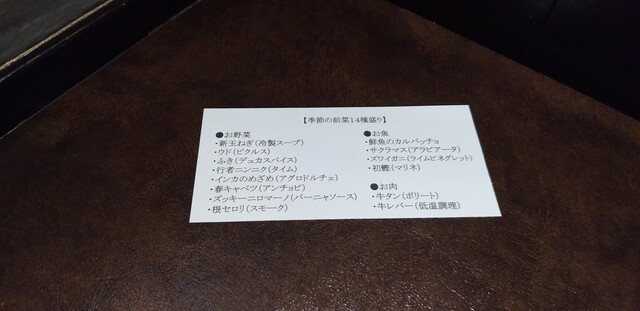 【季節の前菜14種盛り】
●お野菜
・新玉ねぎ(冷製スープ)
・ウド(ピクルス)
・ふき(デュカスパイス)
・行者ニンニク(タイム)
・インカのめざめ(アグロドルチェ)
・春キャベツ(アンチョビ)
・ズッキーニロマーノ(バーニャソース)
・根セロリ(スモーク)
●お魚
・鮮魚のカルパッチョ
・サクラマス(アラビアータ)
・ズワイガニ(ライムビネグレット)
・初鰹(マリネ)
●お肉
・牛タン(ボリート)
・牛レバー(低温調理)